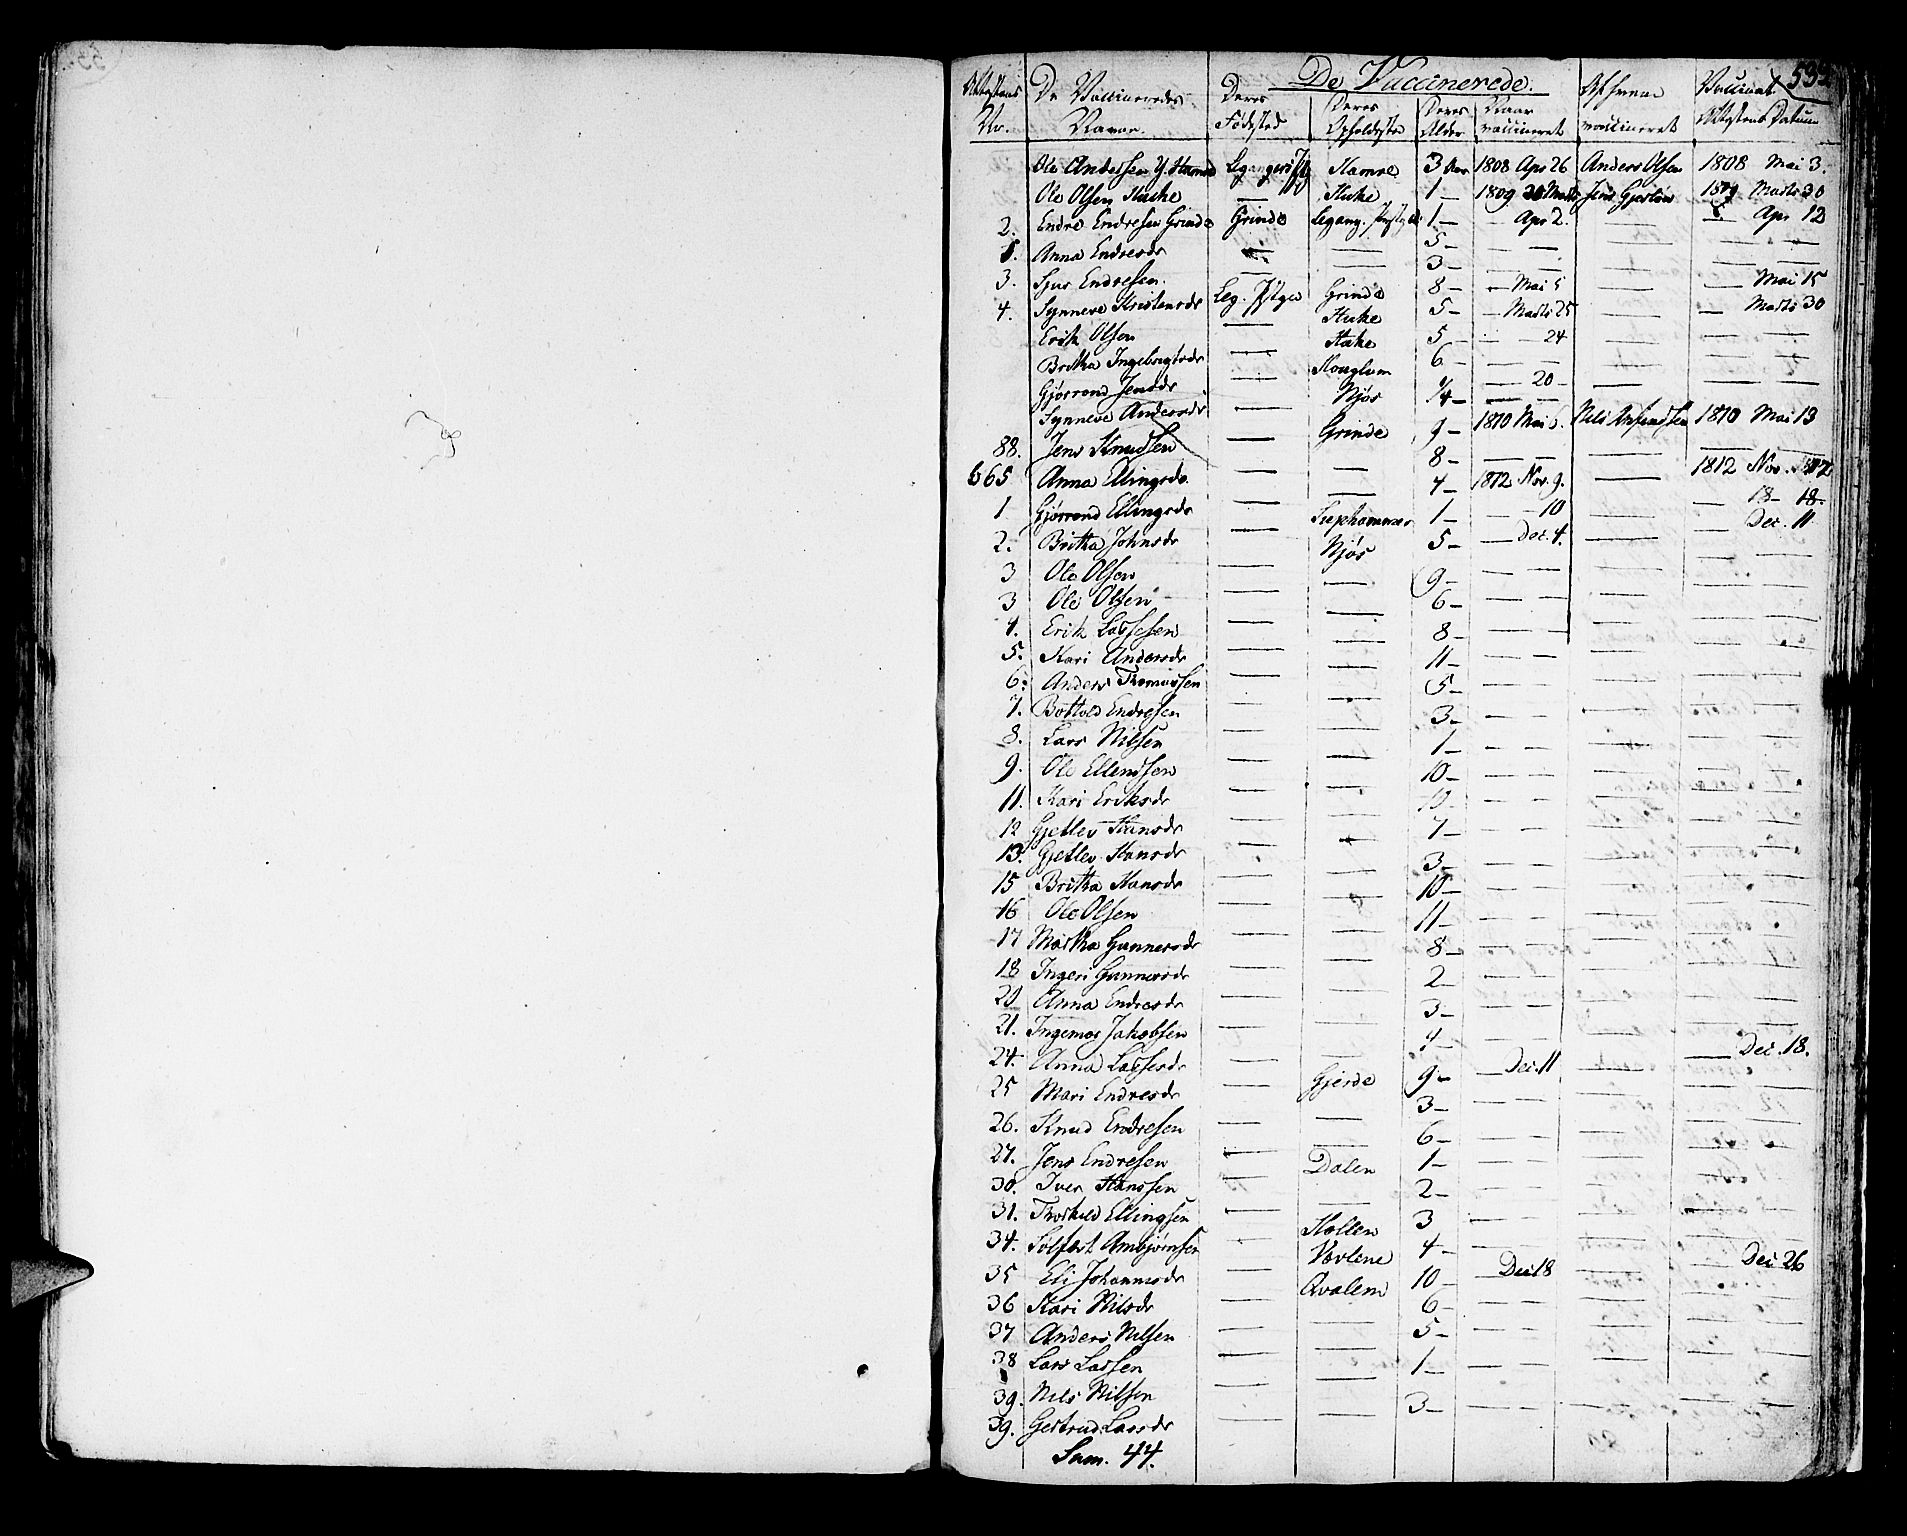 De Vaccinerede.
Attestens No. De Vaccineredes Navne. Deres Fødested Deres Opholdssted Deres Alder Naar vaccineret Af hvem vaccineret Vaccinat. Attestens Datum
Ole Andersen Hamre 3 Aar 1808 Apr 26 Anders Olsen 1808 Mai 3.
Ole Olsen Huke — Huke 1 — 1809 Marts Jens Gjerløw 1809 Marts 30
2. Endre Endresen Grinde Grinde Legang. 1 — — Apr 2. — — Apr 12
1. Anna Endresdr — — 5 — — — — — —
3. Sjur Endresen — — 3 — — — — — —
4. Synneve Kristensdr Leg. Grinde 8 — — Mai 5 — — Mai 15
Erik Olsen — Huke 5 — — Marts 25 — — Marts 30
Britha Ingebrigtsdr — Huke 5 — — 24 — — —
Gjørrond Jensdr — 6 — — — — — —
Synneve Andersdr — Njøs 1/4 — — 20 — — — —
88. Jens Knudsen — Grinde 9 — 1810 Mai 6. Nils 1810 Mai 13
665 Anna Ellingsdr — — 8 — — — — — —
1 Gjørrond Ellingsdr — — 4 — 1812 Nov. 9. — 1812 Nov. 17
2. Britha Johnsdr — 1 — — 10 — — 18
3 Ole Olsen — Njøs 5 — — Dec. 4. — — Dec. 11
3 Ole Olsen — — 9 — — — — — —
4. Erik Lassesen — — 6 — — — — — —
5. Kari Andersdr — — 8 — — — — — —
6. Anders Thomassen — — 11 — — — — — —
7. Botolv Endresen — — 5 — — — — — —
8. Lars Nilsen — — 3 — — — — — —
9. Ole Ellendsen — — 1 — — — — — —
11. Kari Eriksdr — — 10 — — — — — —
12 Gjetlev Hansdr — — — — — — —
13. Gjetlev Hansdr — — 7 — — — — — —
15 Britha Hansdr — — 3 — — — — — —
16 Ole Olsen — — 10 — — — — — —
17 Martha Gunnersdr — — 11 — — — — — —
18 Ingeri Gunnersdr — — 8 — — — — — —
20 Anna Endresdr — — 2 — — — — — —
21. Ingemor Jakobsen — — 3 — — — — — —
24. Anna Lassesdr — — 4 — — — — — —
25 Mari Endresdr — Gjerde 9 — — Dec. 11 — — Dec. 18.
26. Knud Endresen — — 3 — — — — — —
27. Jens Endresen — — 6 — — — — — —
30. Iver Hanssen — Dalen 1 — — — — — —
31. Thorkild Ellingsen — — 2 — — — — — —
34. Solfest Ambjørnsen — Hollen 3 — — — — —
35 Eli Johannesdr — 4 — — — — — —
36 Kari Nilsdr — Qvalem 10 — — Dec 18 — — Dec 26
37 Anders Nilsen — — 6 — — — — — —
38 Lars Lassen — — 5 — — — — — —
39. Nils Nilsen — — 1 — — — — — —
39. Gertrud Larsdr — — 3 — — — — — —
Sum. 44.